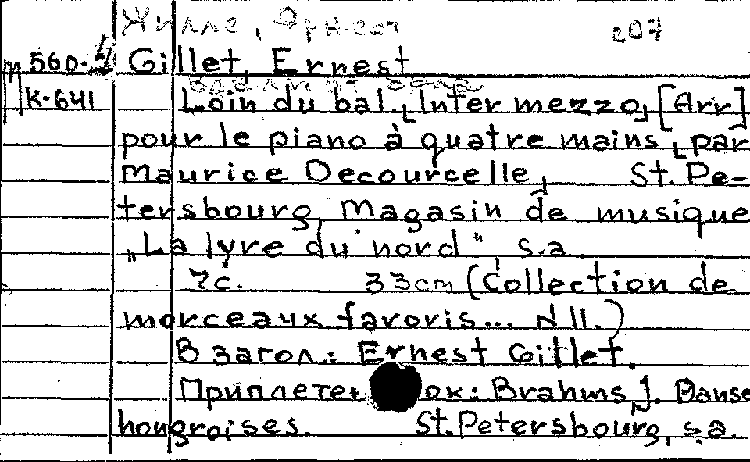 Жилле, Эрнест 207
560-4 Gillet, Ernest
К-641 Loin du bal. Intermezzo, [Arr]
pour le piano à quatre mains, par
Maurice Decourcelle, St. Pe-
tersbourg, Magasin de musique
„La lyre du nord", s.a.
7с. 33cm (Collection de
morceaux favoris... N 11.)
В загол.: Ernest Gillet.
Приплетен к: Brahms, J. Danses
hongroises. St. Petersbourg, s.a.